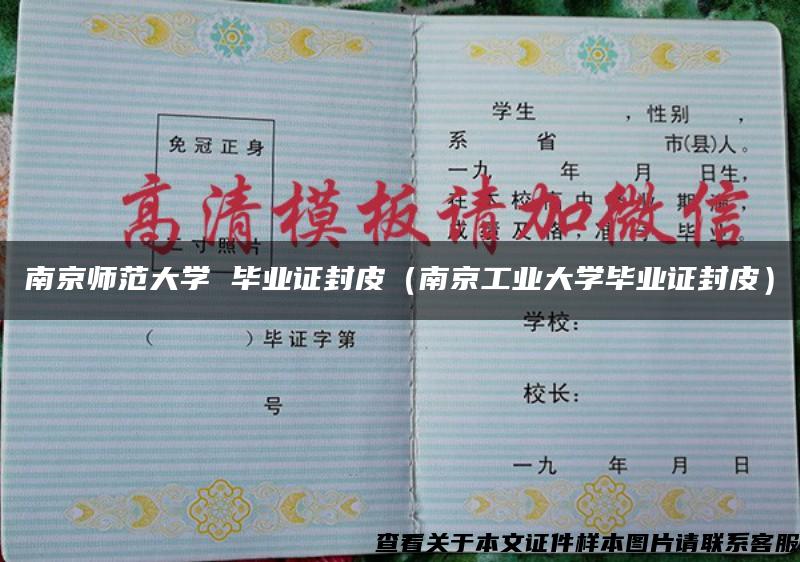 免冠正身
二寸照片
（ ）毕证字第
号
学生 ，性别 ，
系 省 市(县)人。
一九 年 月 日生，
在 校 中 业 期 ，
成绩及格，准 毕业。
高清模板请加微信
南京师范大学 毕业证封皮（南京工业大学毕业证封皮）
学校：
校长：
一九 年 月 日
查看关于本文证件样本图片请联系客服